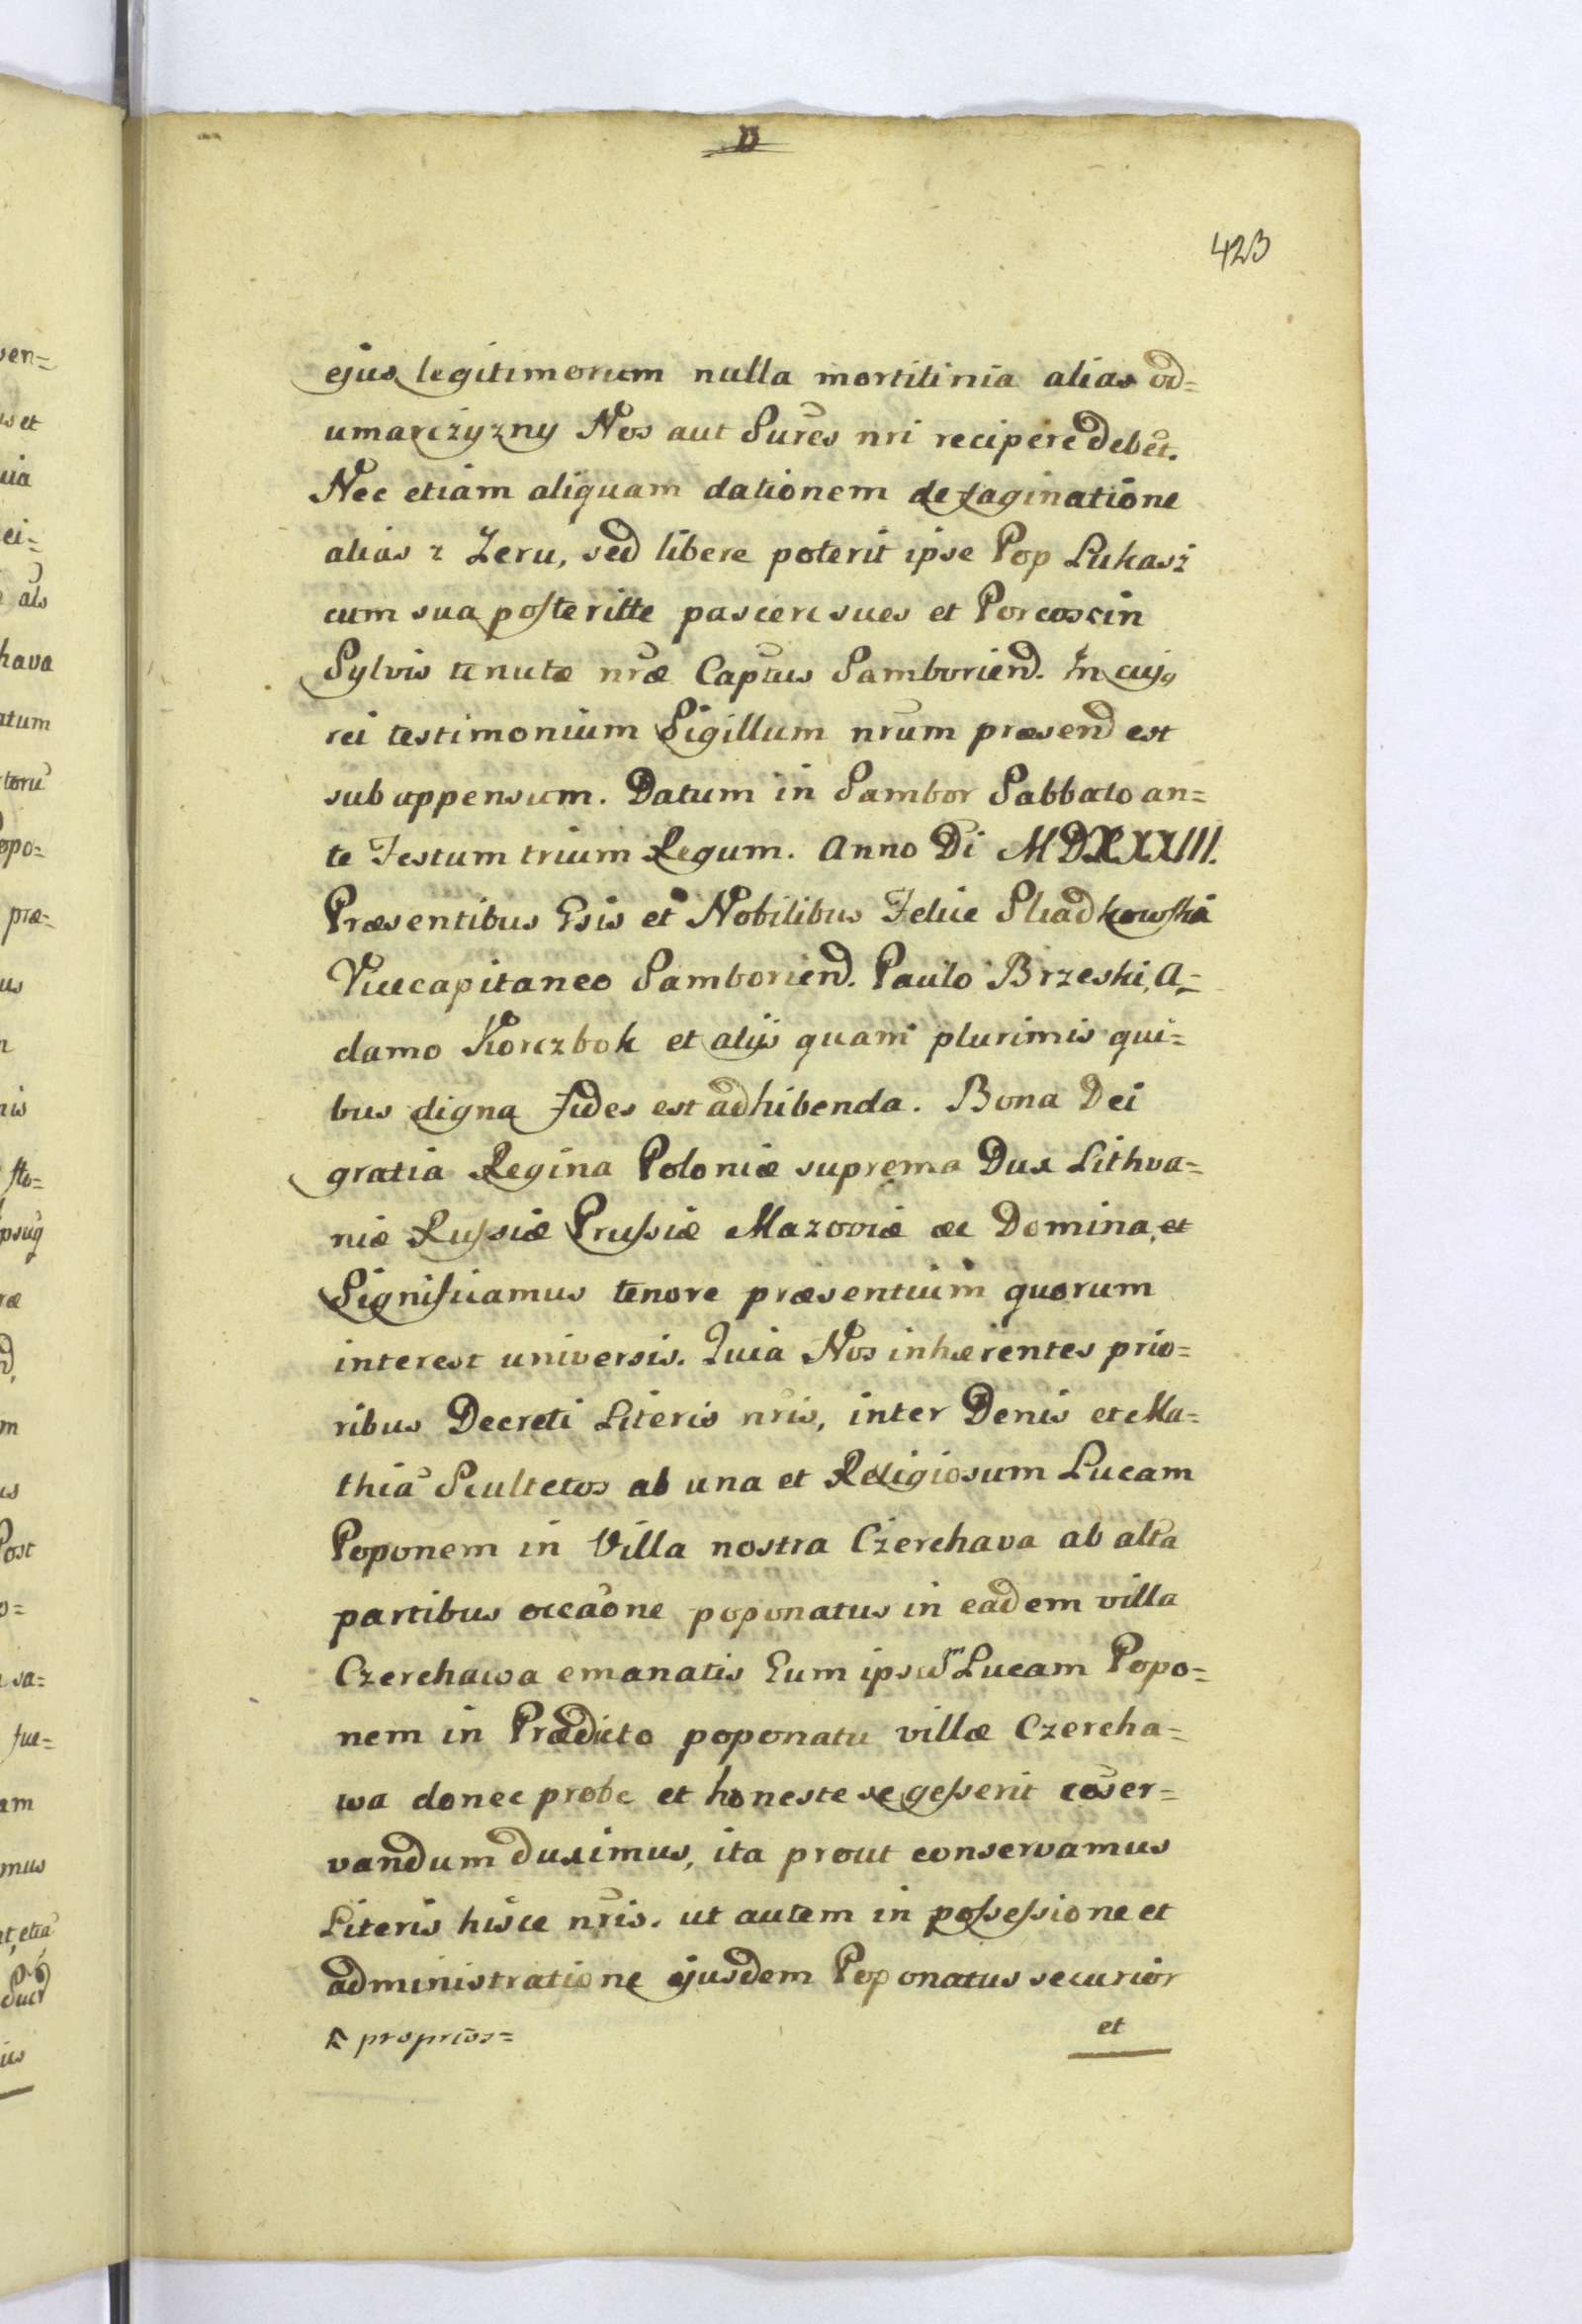 423
ejus legitimorum nulla mortilinia alias od=
umarczyzny Nos aut Sures nri recipere debet.
Nec etiam aliquam dationem de saginatione
alias z Zeru, sed libere poterit ipse Pop Lukasz
cum sua posteritte pascere sues et Porcos in
Sylvis tenutæ nræ Captus Samborien̄d. In cujs
rei testimonium Sigillum nrum præsend est
subappensum. Datum in Sambor Sabbato an=
te Festum trium Regum. Anno Di MDXXXIII.
Præsentibus Gsis et Nobilibus Felice Sliadkowski
Vicecapitaneo Samboriend. Paulo Brzeski, A=
damo Korczbok et alijs quam plurimis qui=
bus digna fides est adhibenda. Bona Dei
gratia Regina Poloniæ suprema Dux Lithva=
niæ Russiæ Prussiæ Mazoviæ æc Domina, et
Significamus tenore præsentium quorum
interest universis. Quia Nos inhærentes prio=
ribus Decreti Literis nris, inter Denis et Ma=
thia Scultetos ab una et Religiosum Lucam
Poponem in Villa nostra Czerchava ab alta
partibus occaōne poponatus in eadem villa
Czerchawa emanatis Eum ipsum Lucam Popo=
nem in Prædicto poponatu villæ Czercha=
wa donec probe et honeste se gesserit cōser=
vandum duximus, ita prout conservamus
Literis hisce nris. ut autem in possessione et
administratione ejusdem Poponatus securior
proprios=
et